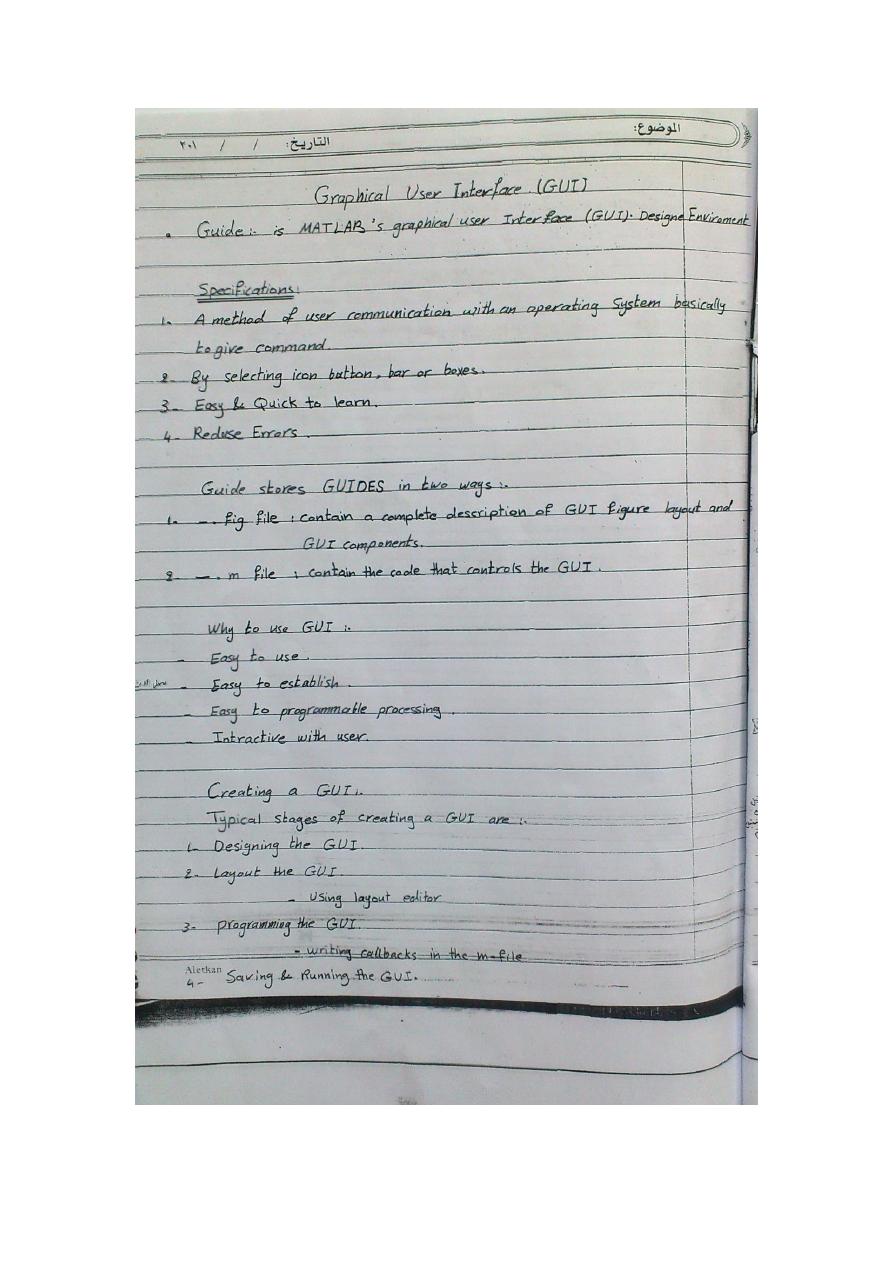 الموضوع:
التاريخ: / / ٢٠١
Graphical User Interface (GUI)
• Guide:- is MATLAB's graphical user Interface (GUI). Designe Enviroment
Specifications:
1- A method of user communication with an operating System basically
to give command.
2- By selecting icon button, bar or boxes.
3- Easy & Quick to learn.
4- Reduse Errors.
Guide stores GUIDES in two ways:-
1- —. fig file : contain a complete description of GUI figure layout and
GUI components.
2- —. m file : contain the code that controls the GUI.
Why to use GUI :-
- Easy to use.
- Easy to establish.
- Easy to programmable processing.
- Intractive with user.
Creating a GUI:-
Typical stages of creating a GUI are :-
1- Designing the GUI.
2- Layout the GUI.
- Using layout editor
3- programming the GUI.
- writing callbacks in the m-file
Aletkan
4- Saving & Running the GUI.